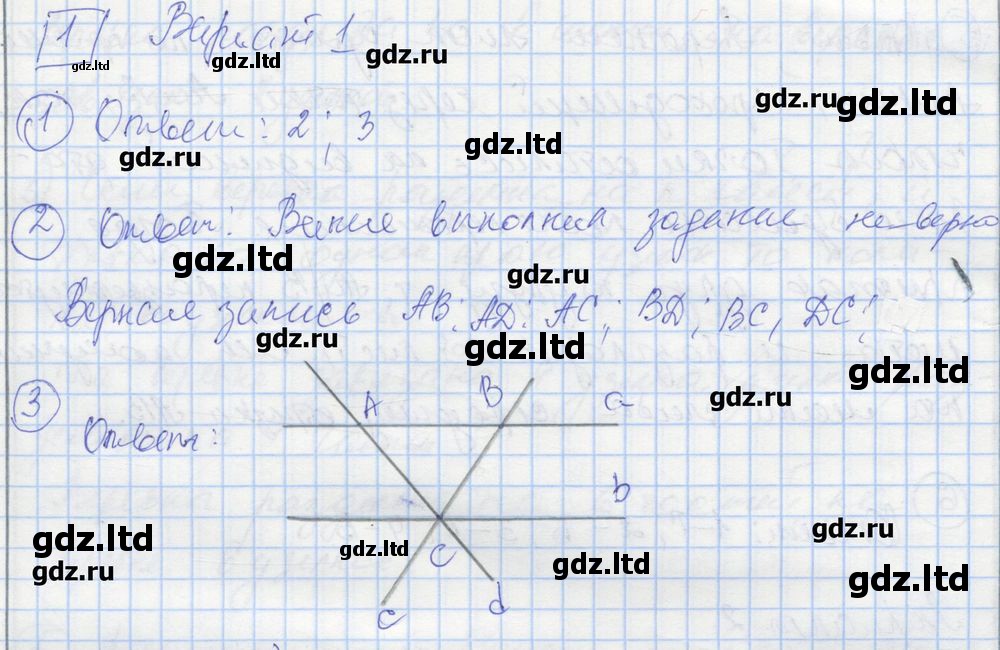 1 Вариант 1
gdz.ltd gdz.ltd gdz.ru
gdz.ru gdz.ltd
1 Ответ: 2; 3
gdz.ru gdz.ltd
2 Ответ: выполнил задание не верно
gdz.ltd gdz.ru
запись AB; AD; AC; BD; BC; DC;
gdz.ru gdz.ltd gdz.ltd
3 A B a
gdz.ru
Ответ:
b
gdz.ltd gdz.ltd gdz.ru
C gdz.ltd
gdz.ru gdz.ltd
c d